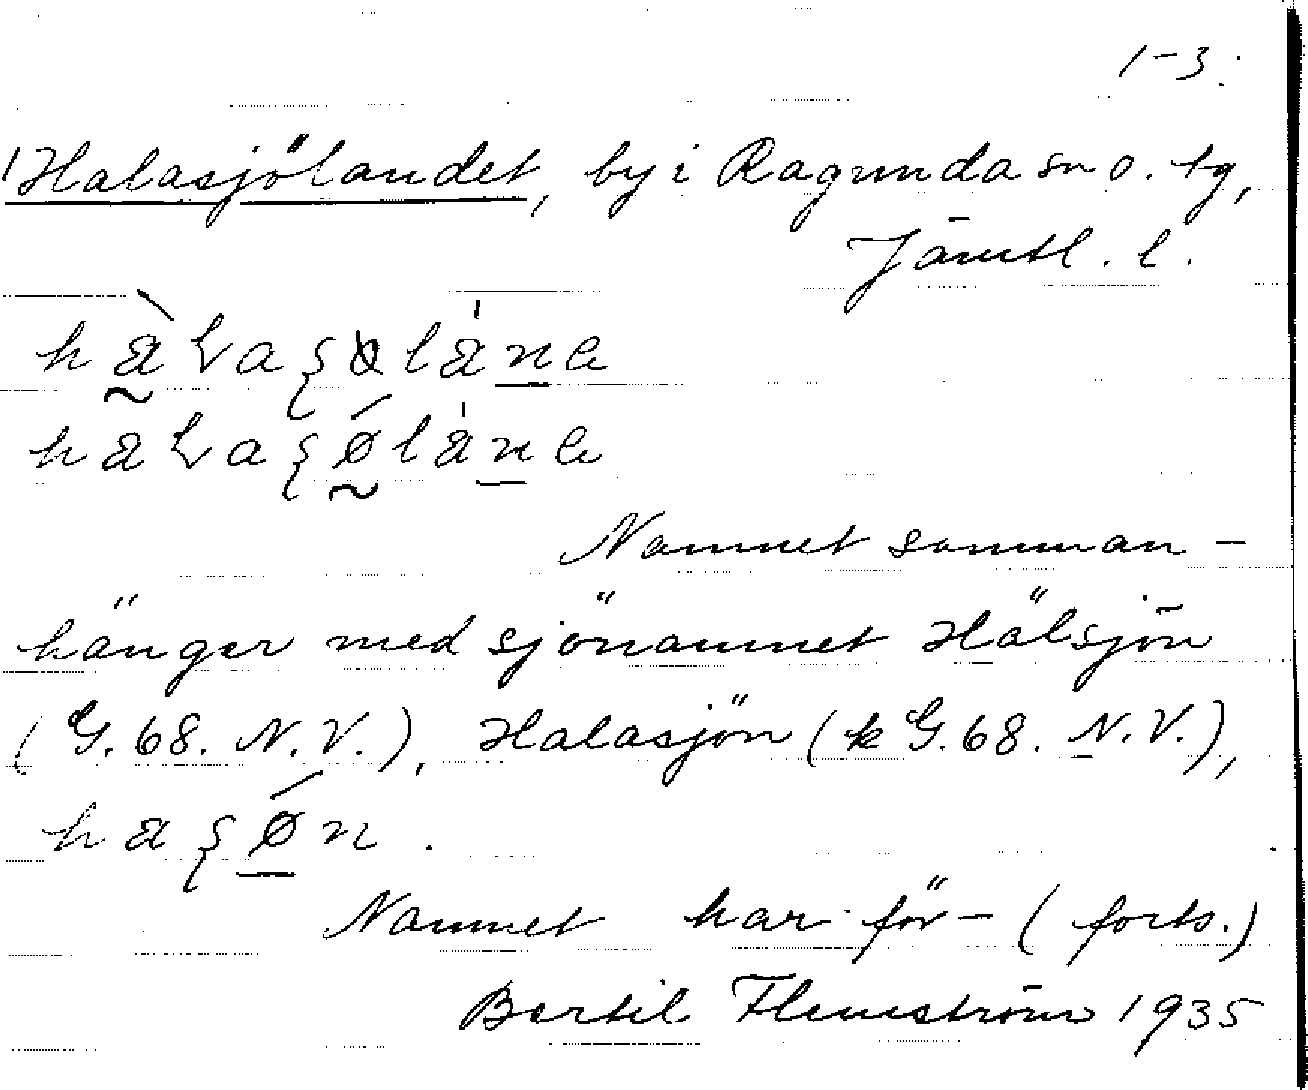 1-3.
Halasjölandet, by i Ragunda sn o. tg,
Jämtl. l.
Namnet samman-
hänger med sjönamnet Hälsjön
(G. 68. N.V.), Halasjön (k G. 68. N.V.),
Namnet har för- (forts.)
Bertil Flemström 1935